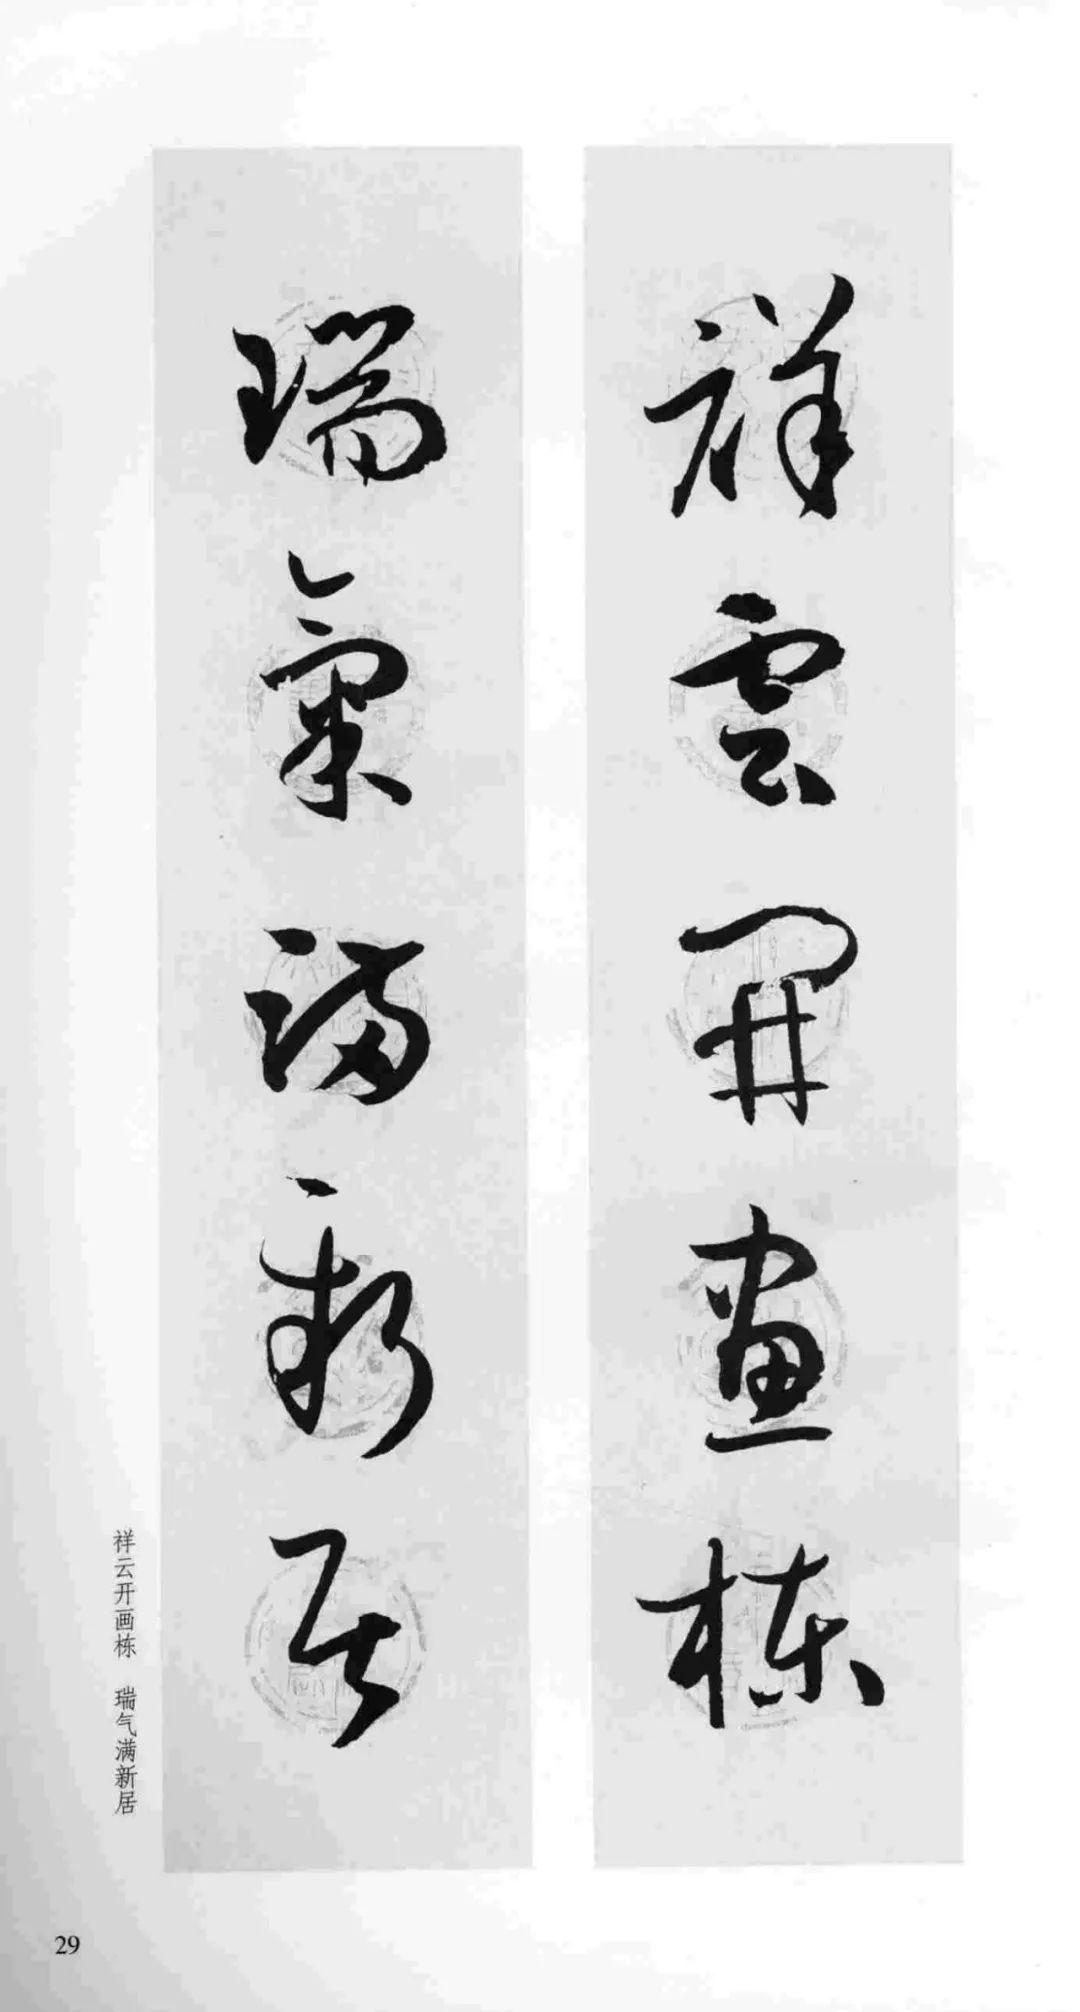 祥雲開畫棟
瑞氣滿新居
祥云开画栋 瑞气满新居
29